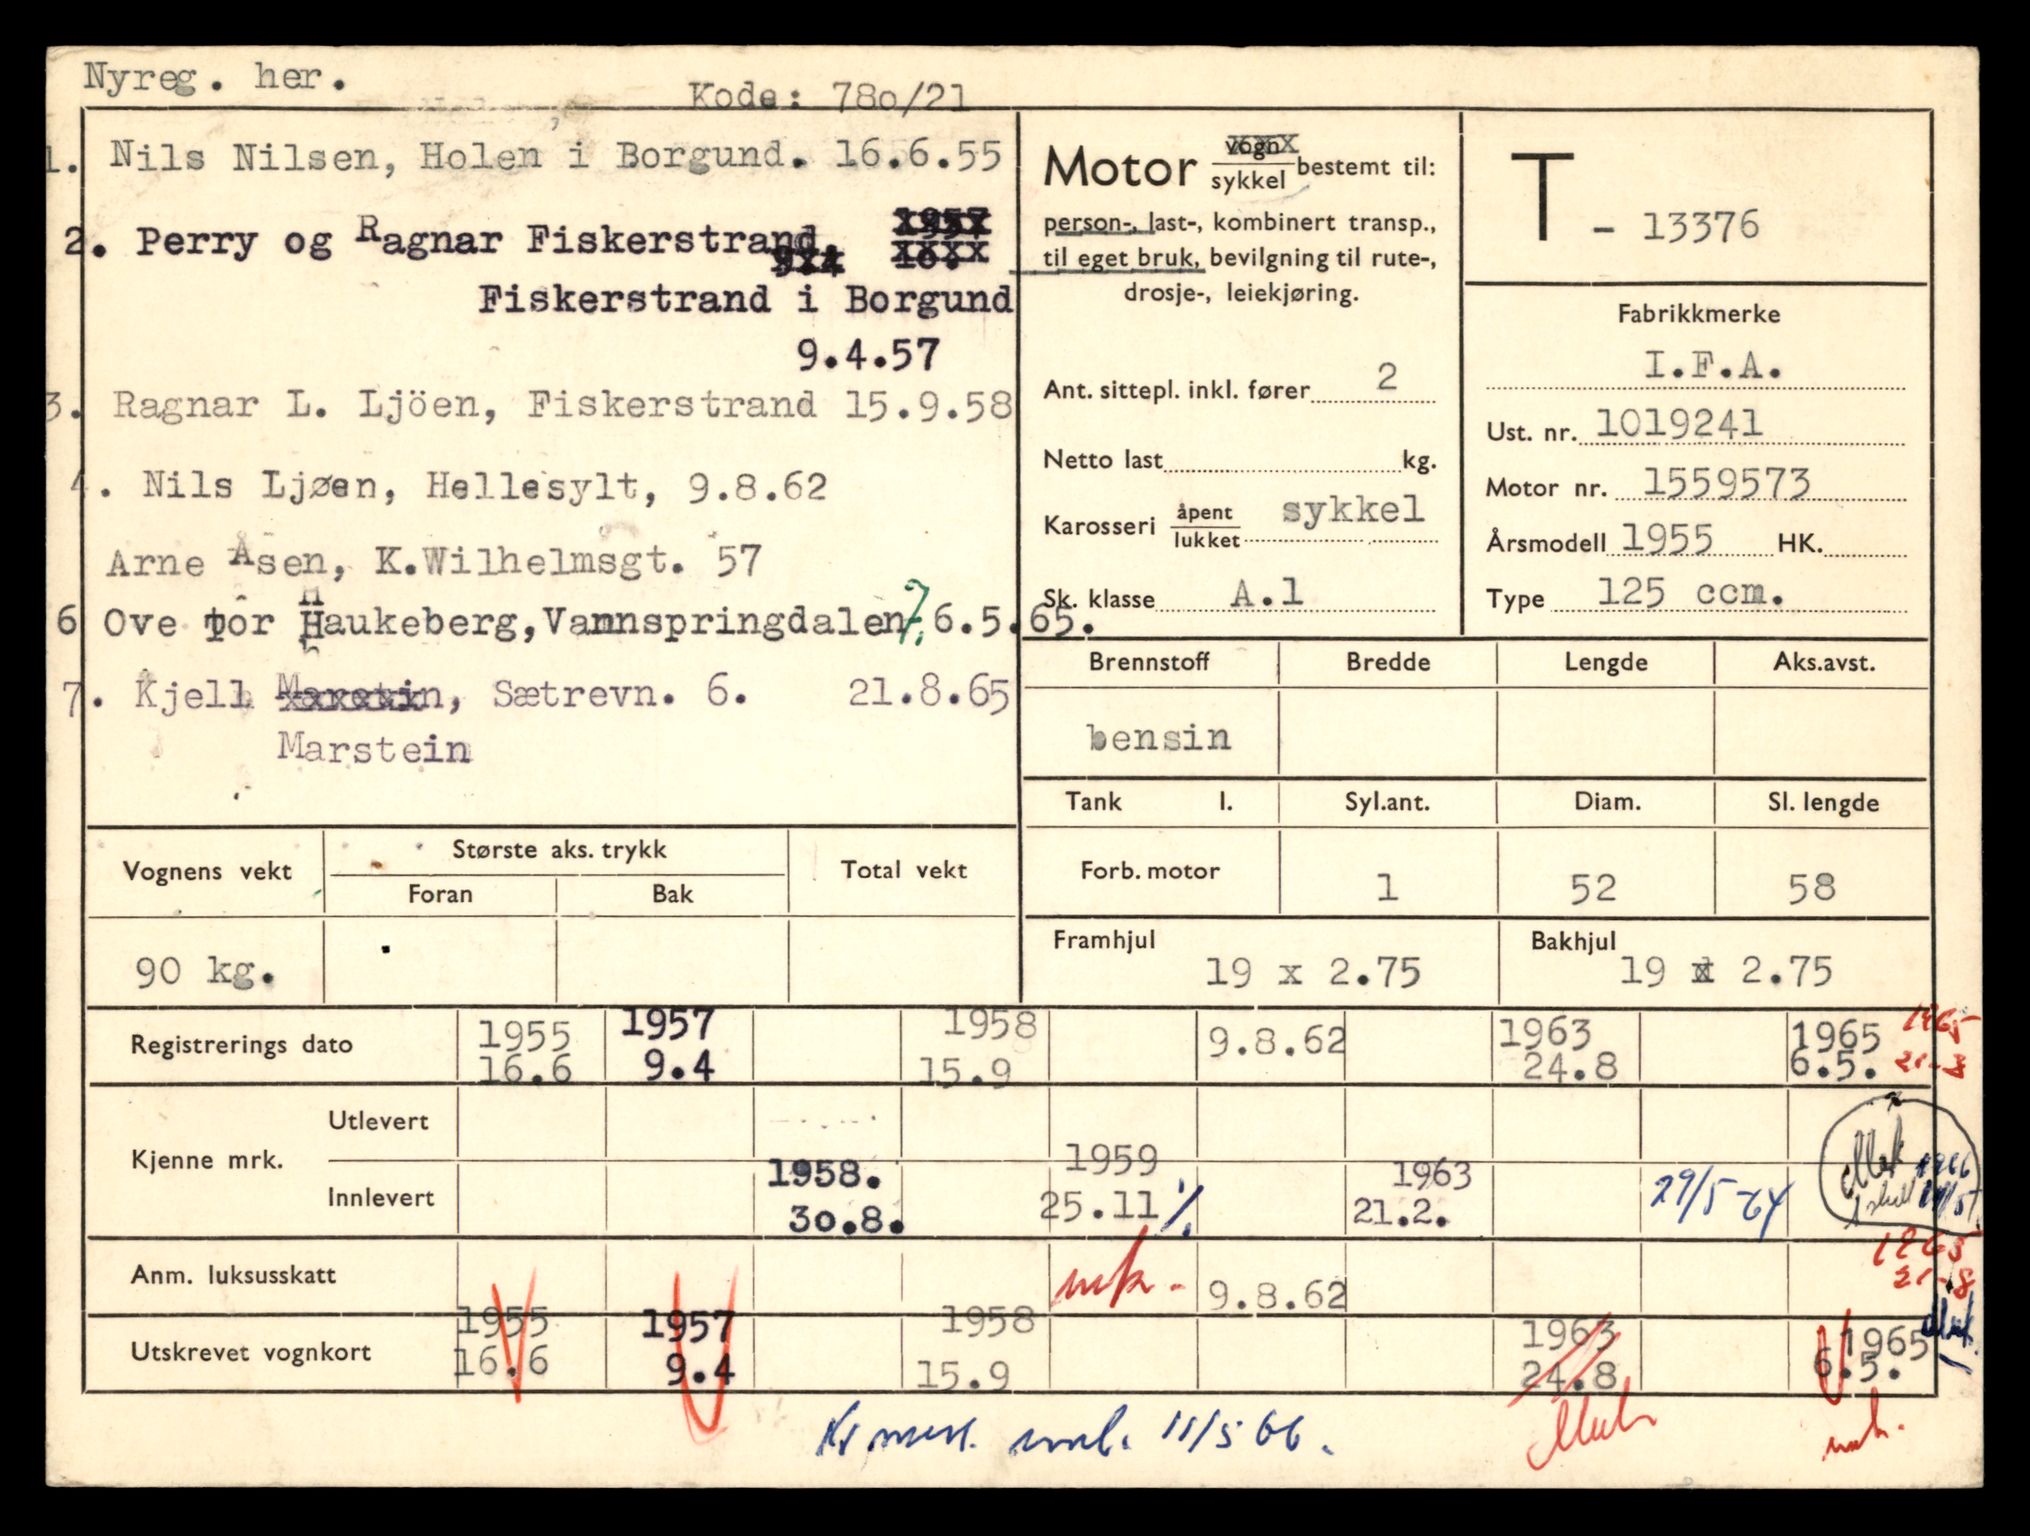 Nyreg. her.
Kode: 78o/21
1. Nils Nilsen, Holen i Borgund. 16.6.55
2. Perry og Ragnar Fiskerstrand,
Fiskerstrand i Borgund
9.4.57
3. Ragnar L. Ljöen, Fiskerstrand 15.9.58
4. Nils Ljøen, Hellesylt, 9.8.62
Arne Åsen, K.Wilhelmsgt. 57
6 Ove tor Haukeberg, Vannspringdalen 7. 6.5.65.
7. Kjell Marstin, Sætrevn. 6. 21.8.65
Marstein
Motor vogn/sykkel bestemt til:
person-, last-, kombinert transp.,
til eget bruk, bevilgning til rute-,
drosje-, leiekjøring.
Ant. sittepl. inkl. fører 2
Netto last kg.
Karosseri åpent/lukket sykkel
Sk. klasse A.1
T - 13376
Fabrikkmerke
I.F.A.
Ust. nr. 1019241
Motor nr. 1559573
Årsmodell 1955 HK.
Type 125 ccm.
Brennstoff Bredde Lengde Aks.avst.
bensin
Tank l. Syl.ant. Diam. Sl. lengde
Forb. motor 1 52 58
Framhjul Bakhjul
19 x 2.75 19 x 2.75
Vognens vekt Største aks. trykk Total vekt
Foran Bak
90 kg.
Registrerings dato 1955 1957 1958 9.8.62 1963 1965 1965
16.6 9.4 15.9 24.8 6.5. 21-8
Kjenne mrk.
Utlevert
Innlevert 1958. 1959 1963 29/5-64 1966
30.8. 25.11 21.2.
Anm. luksusskatt mk- 9.8.62 1965
21-8
Utskrevet vognkort 1955 1957 1958 1963 1965
16.6 9.4 15.9 24.8 6.5.
11/5 66.